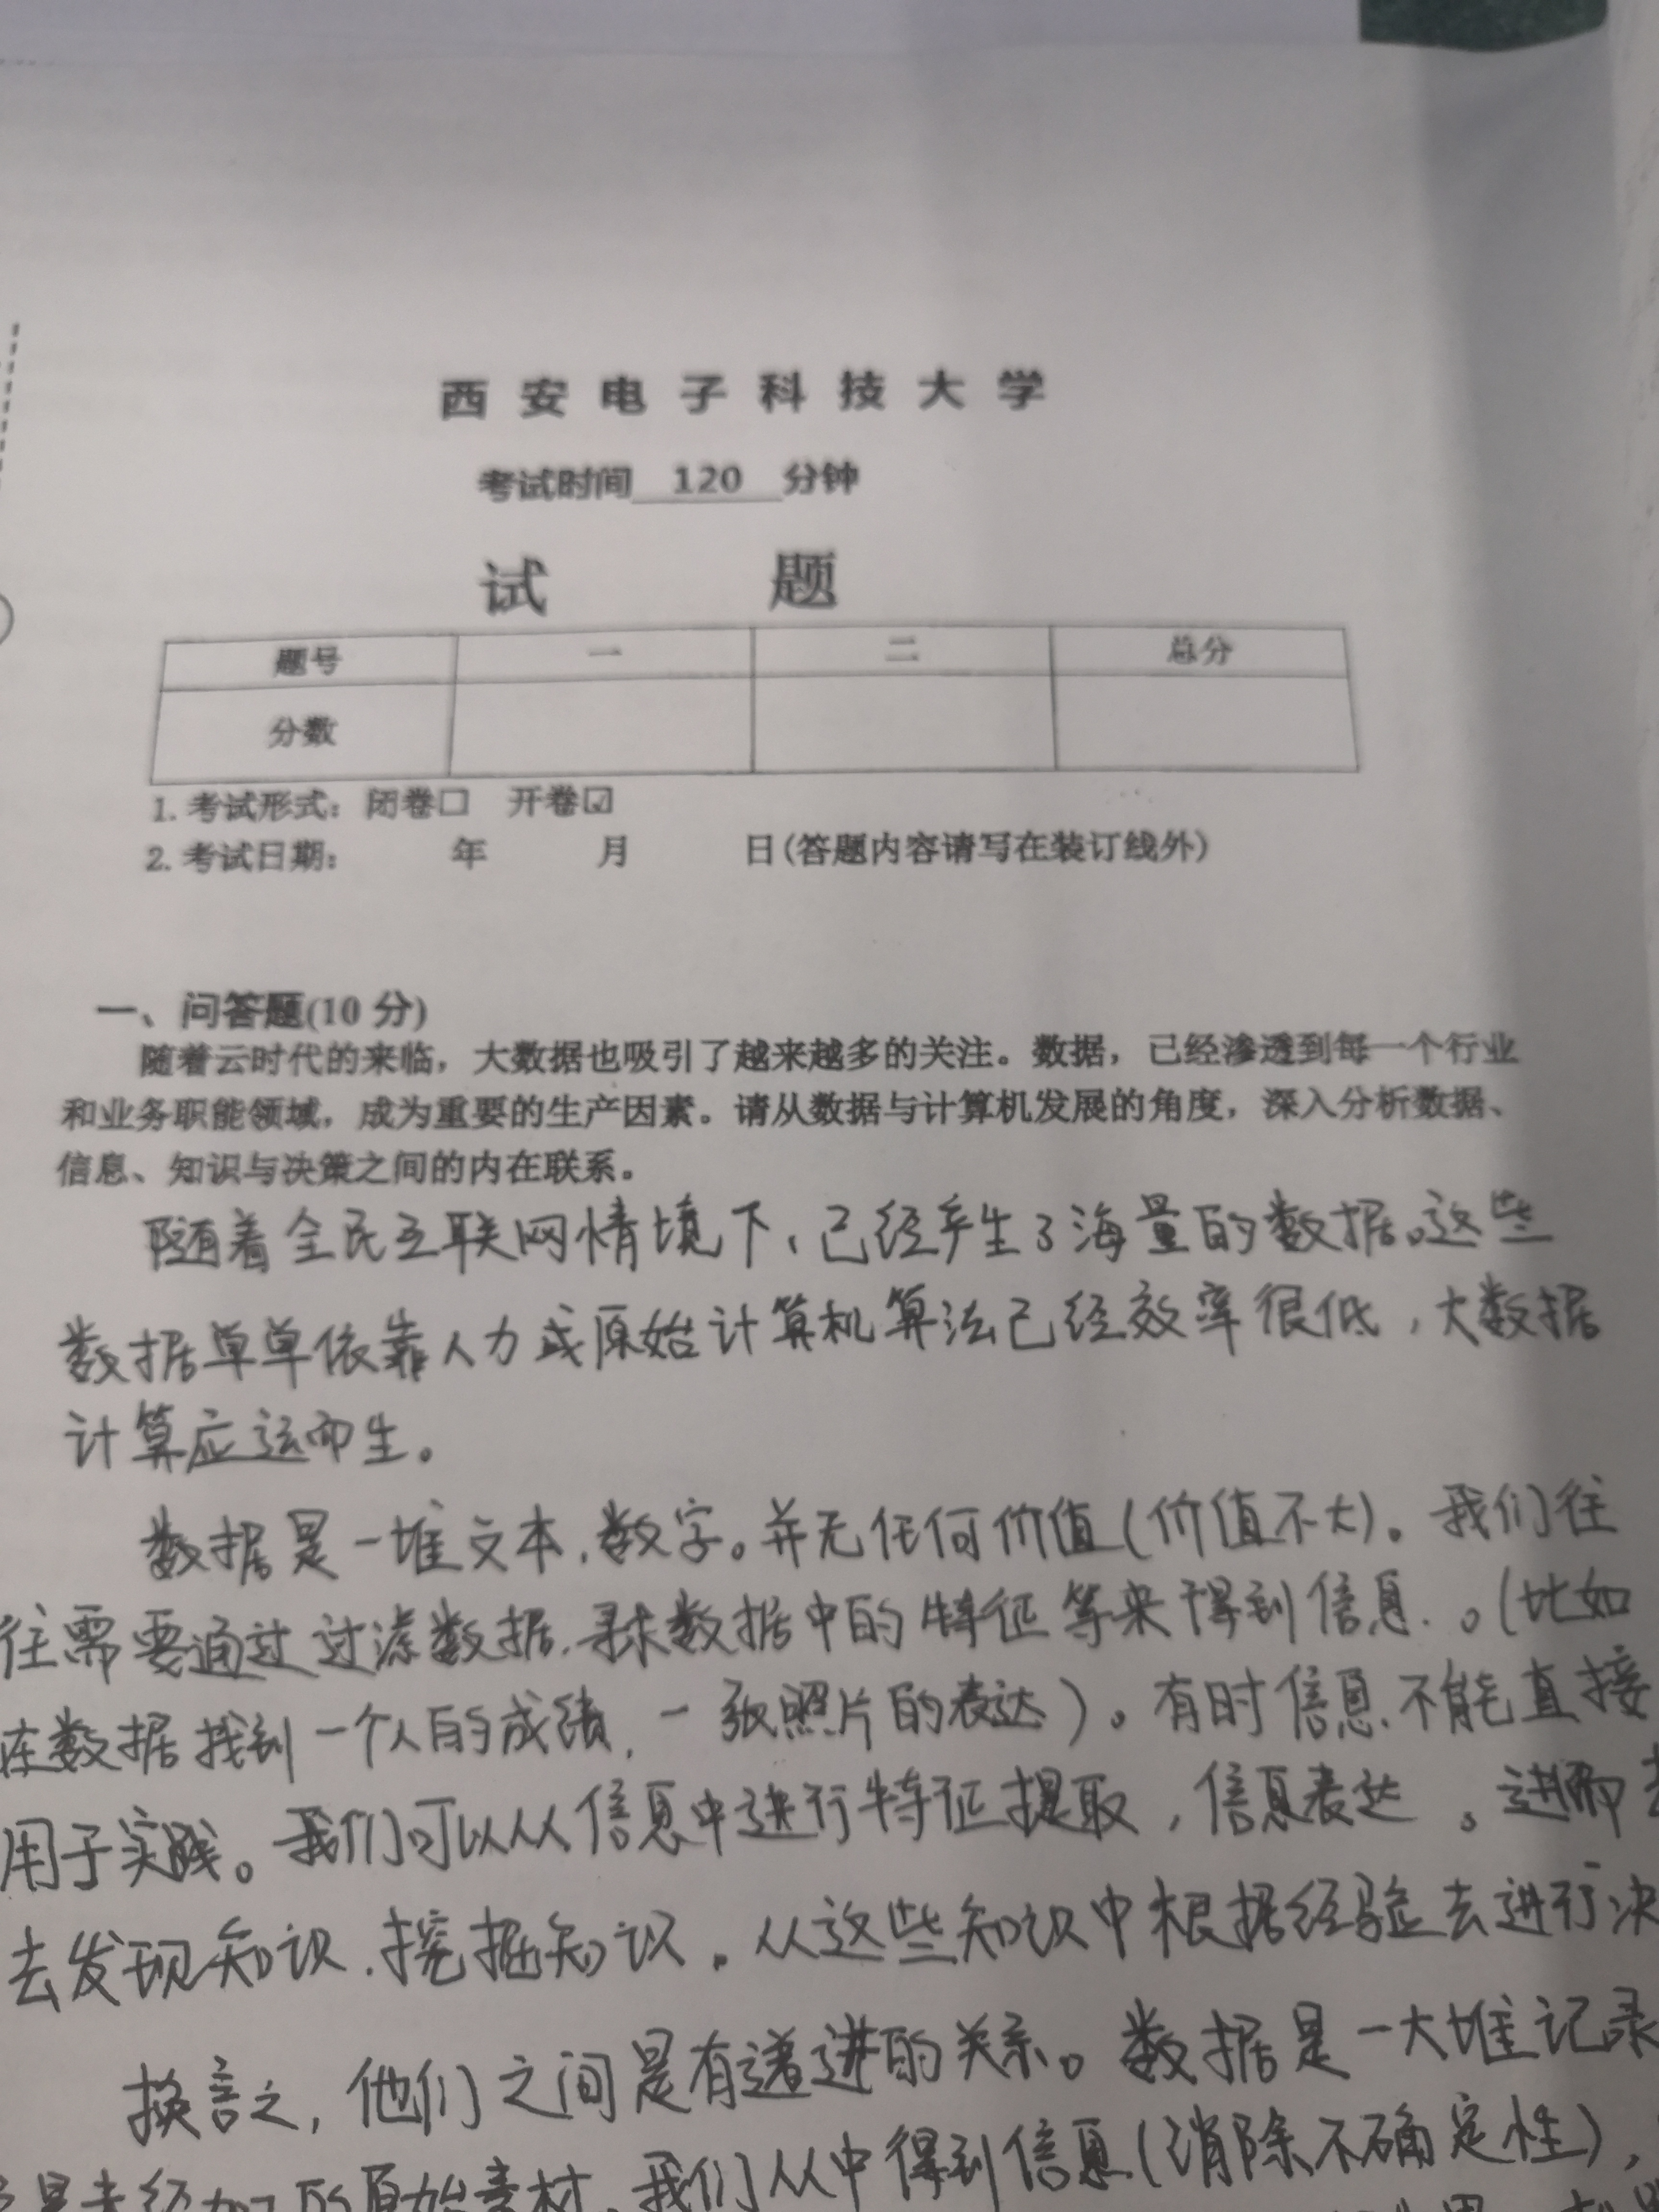 西安电子科技大学
考试时间 120 分钟
试 题
题号 一 二 总分
分数
1. 考试形式：闭卷□ 开卷☑
2. 考试日期： 年 月 日(答题内容请写在装订线外)
一、问答题(10 分)
随着云时代的来临，大数据也吸引了越来越多的关注。数据，已经渗透到每一个行业
和业务职能领域，成为重要的生产因素。请从数据与计算机发展的角度，深入分析数据、
信息、知识与决策之间的内在联系。
随着全民互联网情境下，已经产生了海量的数据。这些
数据单单依靠人力或原始计算机算法已经效率很低，大数据
计算应运而生。
数据是一堆文本，数字。并无任何价值(价值不大)。我们往
往需要通过过滤数据，寻求数据中的特征等来得到信息。(比如
在数据找到一个人的成绩，一张照片的表达)。有时信息不能直接
用于实践。我们可以从信息中进行特征提取，信息表达。进而
去发现知识，挖掘知识。从这些知识中根据经验去进行决
换言之，他们之间是有递进的关系。数据是一大堆记录
是未经加工的原始素材，我们从中得到信息(消除不确定性)，